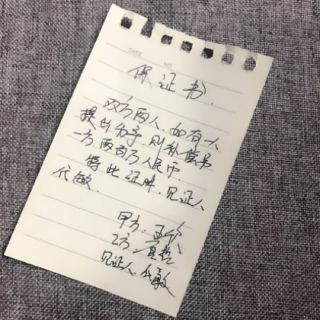 DATE NO.
保证书
双方两人,如有一人
提出分手,则补偿另
一方两百万人民币
特此证明,见证人
代敏.
甲方:
乙方:
见证人: